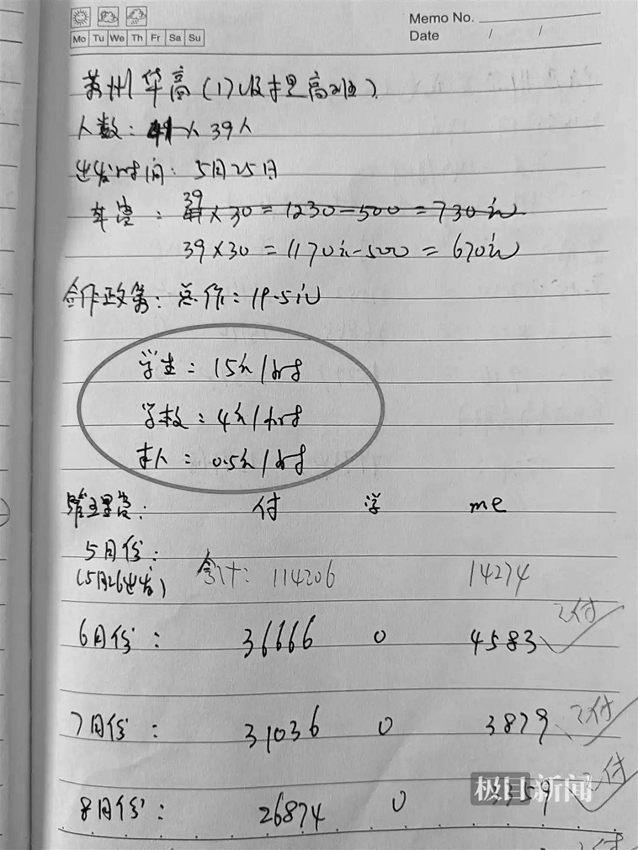 Memo No.
Mo Tu We Th Fr Sa Su
Date / /
苏州华高(17级提高班).
人数: 41人 39人
出发时间: 5月25日
39
车费: 41×30=1230-500=730元
39×30=1170元-500=670元
合作政策: 总价: 19.5元
学生: 15元/时
学校: 4元/时
本人: 0.5元/时
管理费: 付 学 me
5月份:
(5月26出发) 合计: 114206 14274
6月份: 36666 0 4583 已付
7月份: 31036 0 3879 已付
8月份: 26874 0 付
极目新闻
付